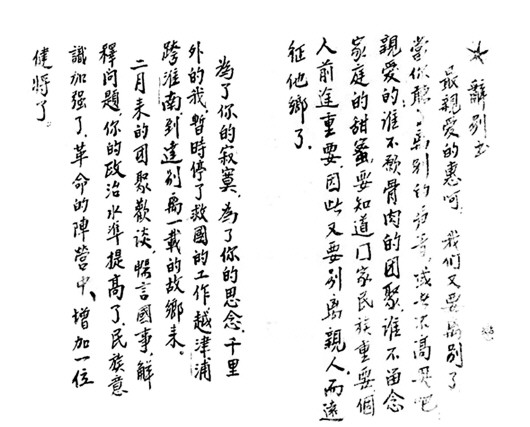 ★辭别書
最親愛的惠呵，我们又要离别了
當你聽了离别的声音，或者不高兴吧
親愛的，誰不願骨肉的团聚，誰不留念
家庭的甜蜜，要知道囗家民族重要，個
人前途重要，因此又要别离親人，而遠
征他鄉了。
為了你的寂寞，為了你的思念，千里
外的我，暫時停了救國的工作越津浦
跨淮南到達别离一載的故鄉来。
二月来的团聚歡談，悵言國事，解
釋问題，你的政治水準提高了，民族意
識加强了，革命的陣營中，增加一位
健將了。